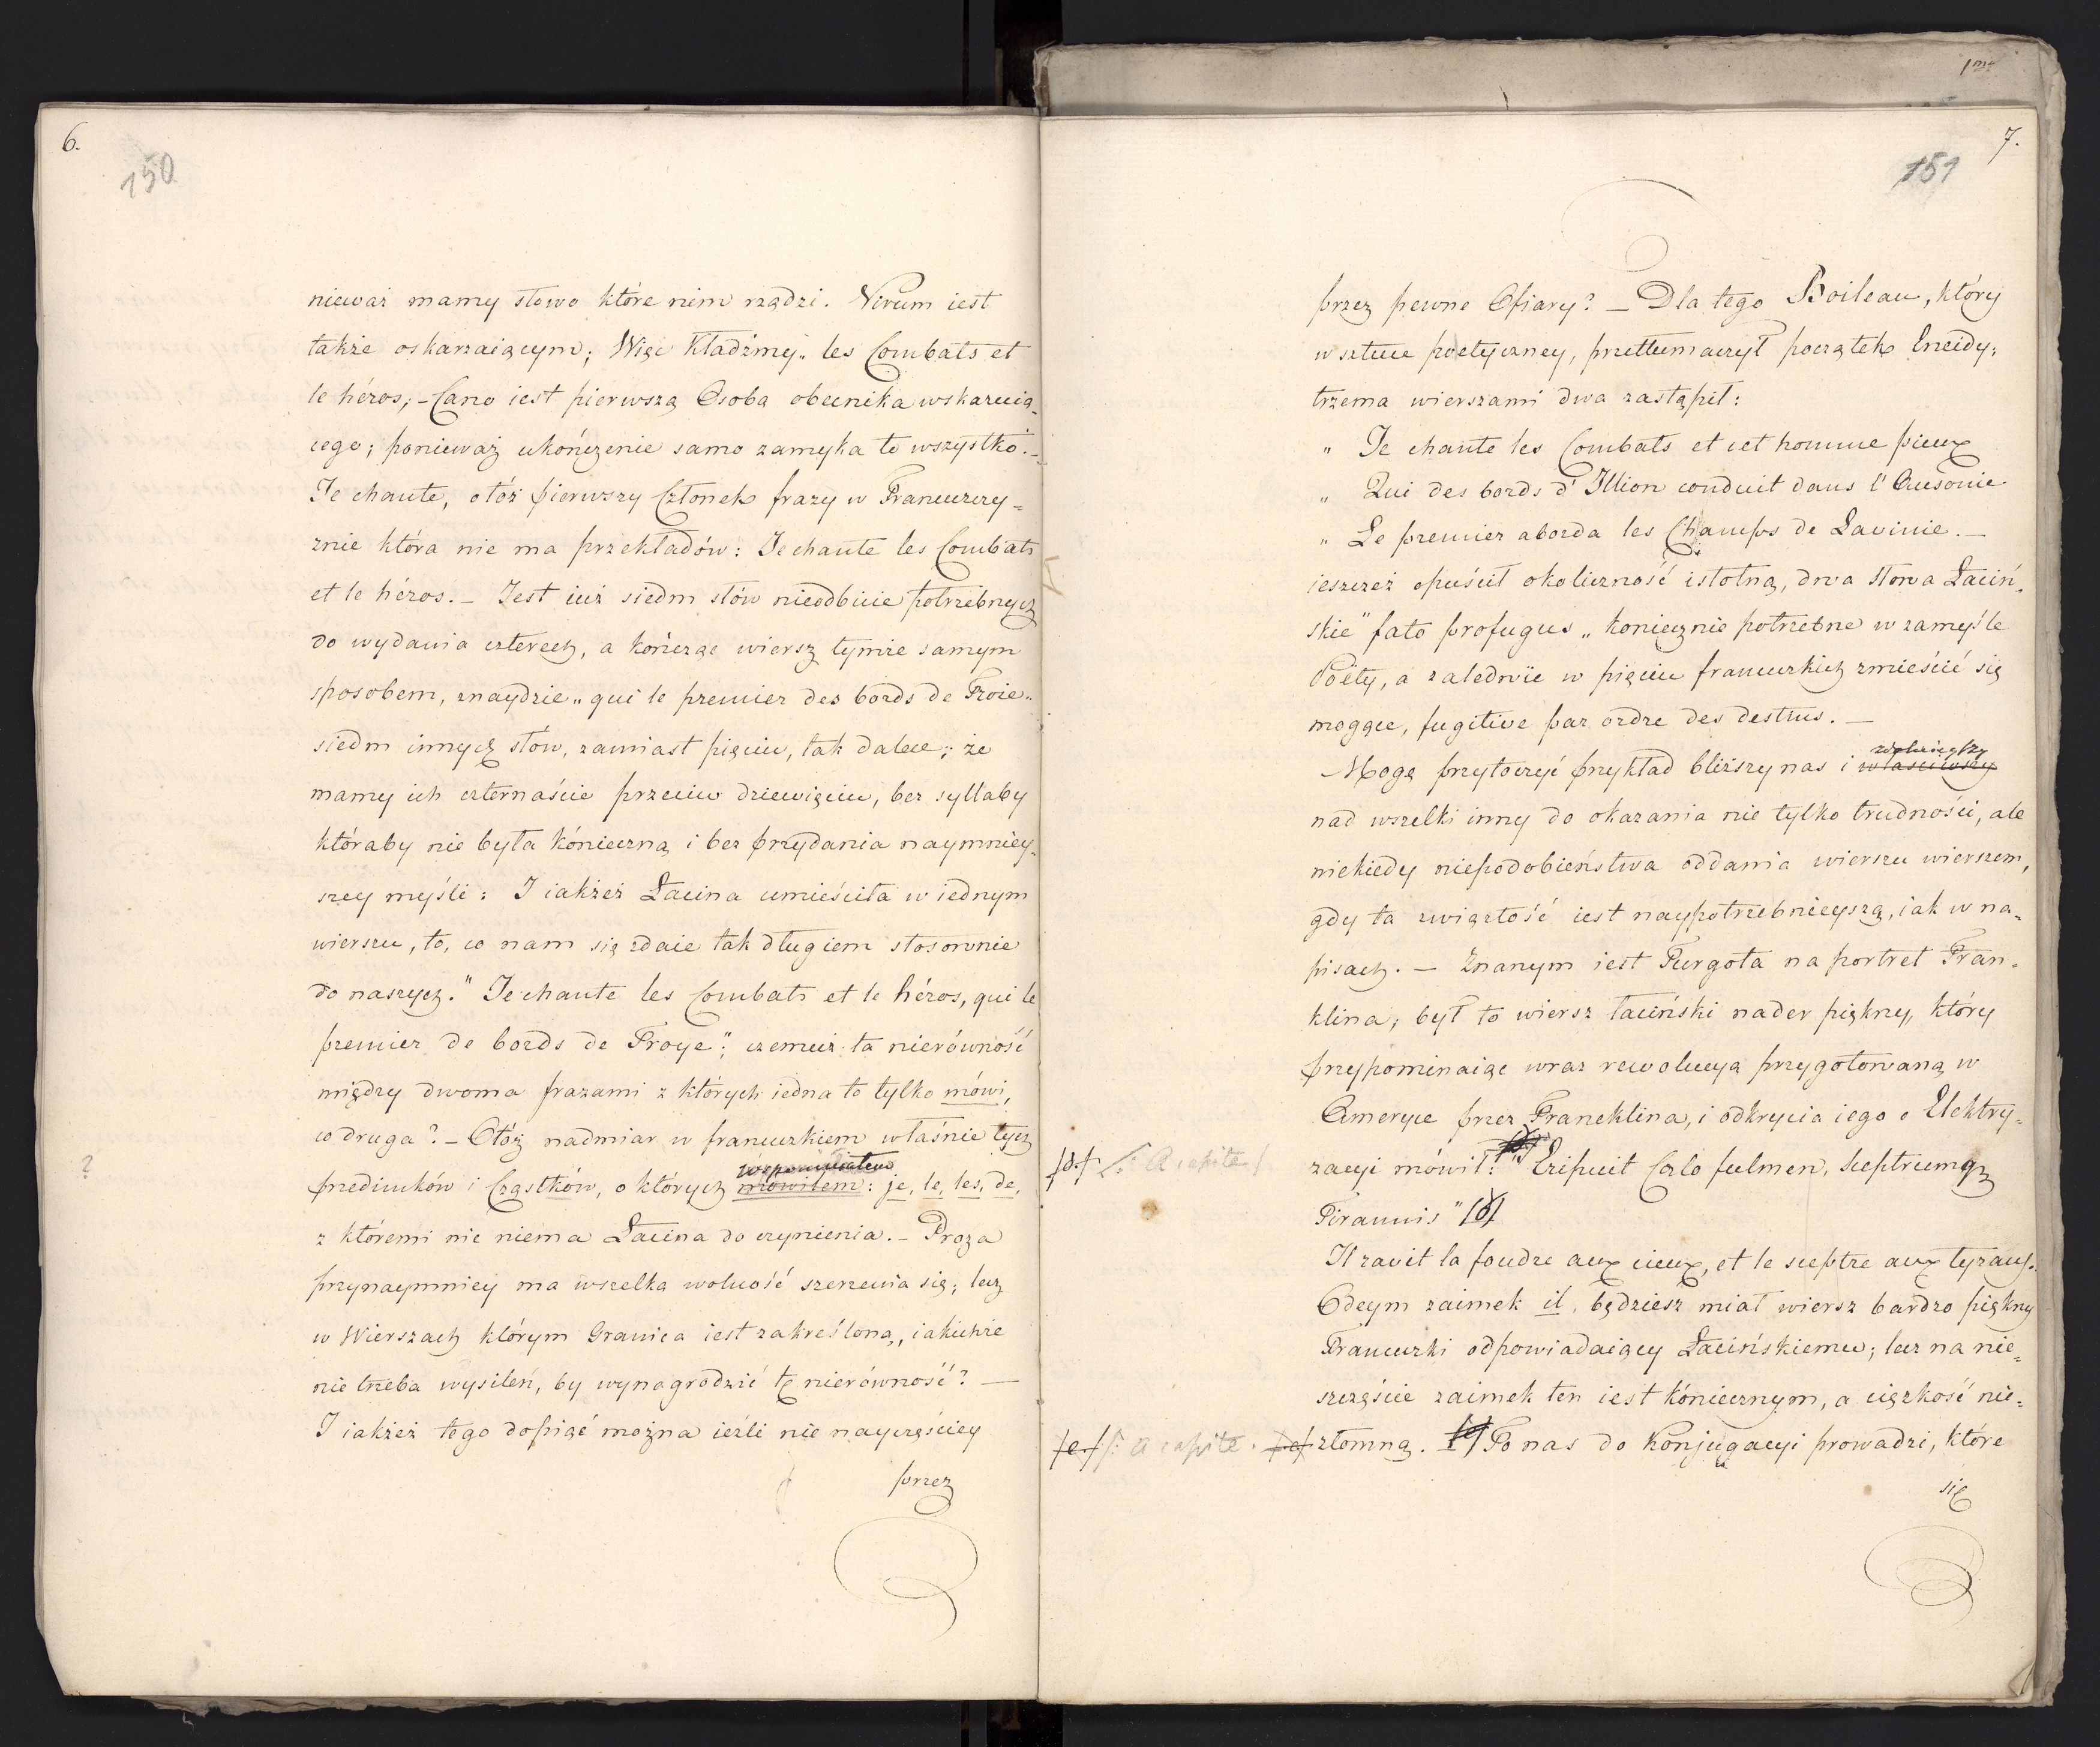 6.
150
nieważ mamy słowo które nim rządzi. Virum iest
także oskarzaiącym; Więc Kładźmy„ les Combats et
le héros; – Cano iest pierwszą Osobą obecnika wskazuią-
cego; ponieważ ukończenie samo zamyka to wszystko. –
Je chante, otóż pierwszy Członek frazy w Francuzczy-
znie która nie ma przekładów: Je chante les Combats
et le héros. – Jest iuż siedm słów nieodbicie potrzebnych
do wydania czterech, a kończąc wiersz tymże samym
sposobem, znaydzie „ qui le premier des bords de Troie„
siedm innych słów, zamiast pięciu, tak dalece; że
mamy ich czternaście przeciw dziewięciu, bez syllaby
któraby nie była kónieczną i bez przydania naymniey-
szey myśli: I iakżeż Łacina umieściła w iednym
wierszu, to, co nam się zdaie tak długiem stosownie
do naszych." Je chante les Combats et le héros, qui le
premier de bords de Troye"; czemuż ta nierówność
między dwoma frazami z których iedna to tylko mówi,
co druga? – Otóż nadmiar w francuzkiem właśnie tych
wspomniałem
?
przedimków i Cząstków, o których mówiłem: je, le, les, de,
z któremi nic niema Łacina do czynienia. – Proza
przynaymniey ma wszelką wolność szerzenia się; lecz
w Wierszach którym Granica iest zakreśloną, iakichże
nie trzeba wysileń, by wynagrodzić tę nierówność? —
I iakżeż tego dopiąć można ieźli nie nayczęściey
przez
1me
7.
151
przez pewne Ofiary? – Dla tego Boileau, który
w sztuce poetyczney, przetłumaczył początek Eneidy;
trzema wierszami dwa zastąpił:
„ Je chante les Combats et cet homme pieux
„ Qui des bords d' Illion conduit dans l' Ausonie
„ Le premier aborda les Champs de Lavinie. —
ieszczeż opuścił okoliczność istotną, dwa słowa Łaciń-
skie" fato profugus „ koniecznie potrzebne w zamyśle
Poëty, a zaledwie w pięciu francuzkich zmieścić się
mogące, fugitive par ordre des destins. —
Mogę przytoczyć przykład bliższy nas i właściwszy
nad wszelki inny do okazania nie tylko trudności, ale
niekiedy niepodobieństwa oddania wierszu wierszem,
gdy ta zwięzłość iest naypotrzebnieyszą, iak w na-
pisach. — Znanym iest Turgota na portret Fran-
klina; był to wiersz łaciński nader piękny, który
przypominaiąc wraz rewolucyą przygotowaną w
Ameryce przez Franeklina, i odkrycia iego o Elektry-
/d./ /: A capite /
zacyi mówił: " Eripuit Cœlo fulmen, Sceptrumqz
Tirannis" /d/
Il ravit la foudre aux cieux, et le sceptre aux tyrans.
Odeym zaimek il, będziesz miał wiersz bardzo piękny
Francuzki odpowiadaiący Łacińskiemu; lecz na nie-
szczęście zaimek ten iest kóniecznym, a ciężkość nie-
/e./ /: a capite. /e/ złomną. /e/ To nas do Konjugacyi prowadzi, które
się